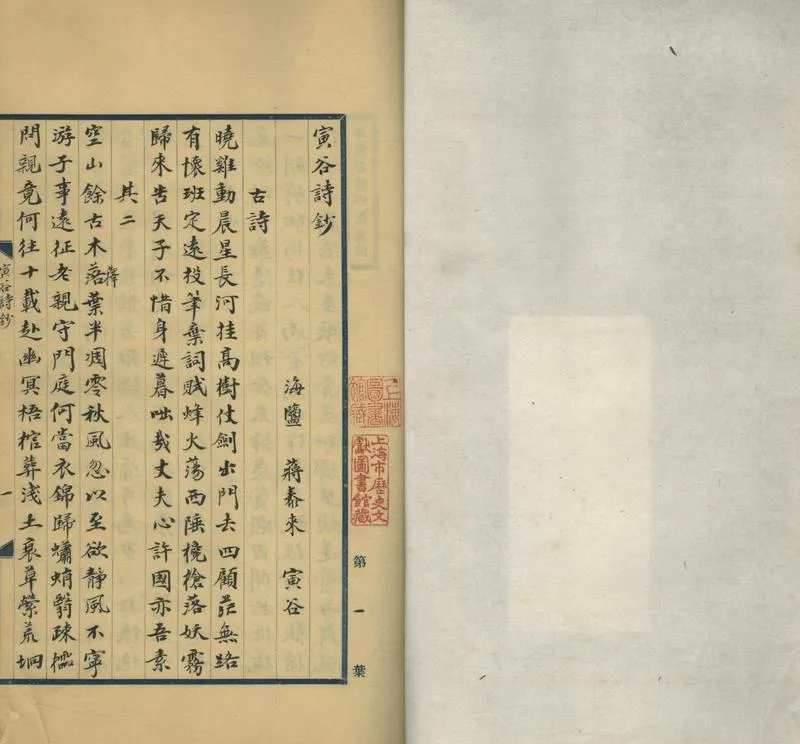 寅谷詩鈔
海鹽 蔣泰來 寅谷
古詩
曉雞動晨星長河挂高樹仗劍出門去四顧茫無路
有懷班定遠投筆棄詞賦烽火蕩西陲欃槍落妖霧
歸來告天子不惜身遲暮咄哉丈夫心許國亦吾素
其二
空山餘古木落葉半凋零秋風忽以至欲靜風不寧
游子事遠征老親守門庭何當衣錦歸蠨蛸翳疎櫺
問親竟何往十載赴幽冥梧棺葬淺土衰草縈荒坰
寅谷詩鈔
一
上海圖書館藏
上海市歷史文獻圖書館藏
第一葉